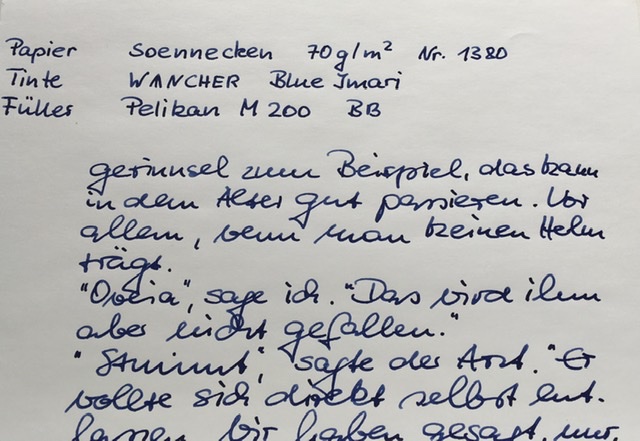 Papier Soennecken 70g/m² Nr. 1320
Tinte WANCHER Blue Imari
Füller Pelikan M 200 BB
gerinnsel zum Beispiel, das kann
in dem Alter gut passieren. Vor
allem, wenn man keinen Helm
trägt.
"Doria", sage ich. "Das wird ihm
aber nicht gefallen."
"Stimmt", sagte der Arzt. "Er
wollte sich direkt selbst ent-
lassen, wir haben gesagt, nur,